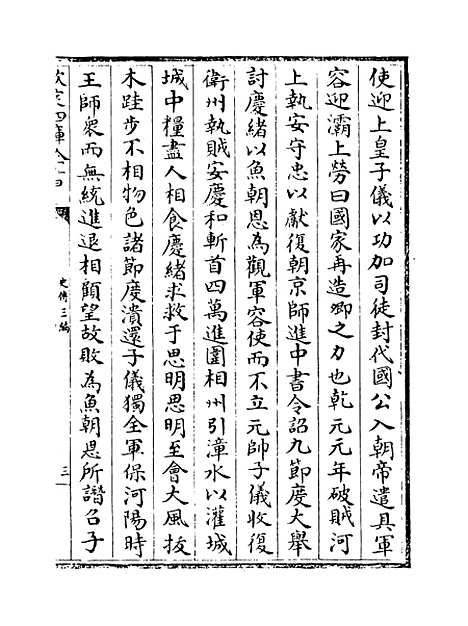 使迎上皇子儀以功加司徒封代國公入朝帝遣具軍
容迎灞上勞曰國家再造卿之力也乾元元年破賊河
上執安守忠以獻復朝京師進中書令詔九節度大舉
討慶緒以魚朝恩為觀軍容使而不立元帥子儀收復
衛州執賊安慶和斬首四萬進圍相州引漳水以灌城
城中糧盡人相食慶緒求救于思明思明至會大風拔
木跬步不相物色諸節度潰還子儀獨全軍保河陽時
王師衆而無統進退相顧望故敗為魚朝恩所譖召子
欽定四庫全書
史傳三編
三